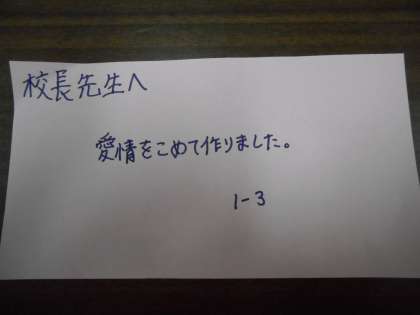 校長先生へ
愛情をこめて作りました。
1-3